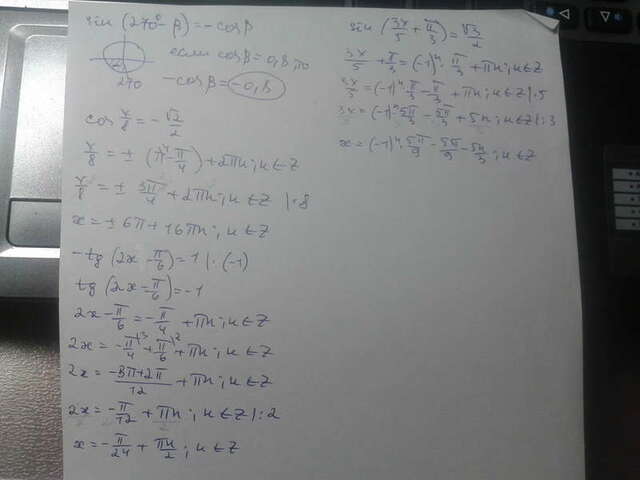 sin (270° - β) = -cosβ
если cosβ = 0,8 то
270
-cosβ = -0,8
cos x/8 = -√2/2
x/8 = ± (π - π/4) + 2πn; n ∈ Z
x/8 = ± 3π/4 + 2πn; n ∈ Z |·8
x = ± 6π + 16πn; n ∈ Z
-tg (2x - π/6) = 1 |·(-1)
tg (2x - π/6) = -1
2x - π/6 = -π/4 + πn; n ∈ Z
2x = -π/4 |3 + π/6 |2 + πn; n ∈ Z
2x = (-3π+2π)/12 + πn; n ∈ Z
2x = -π/12 + πn; n ∈ Z |:2
x = -π/24 + πn/2; n ∈ Z
sin (3x/5 + π/3) = √3/2
3x/5 + π/3 = (-1)ⁿ · π/3 + πn; n ∈ Z
3x/5 = (-1)ⁿ π/3 - π/3 + πn; n ∈ Z |·5
3x = (-1)ⁿ 5π/3 - 5π/3 + 5n; n ∈ Z |:3
x = (-1)ⁿ · 5π/9 - 5π/9 - 5n/3; n ∈ Z